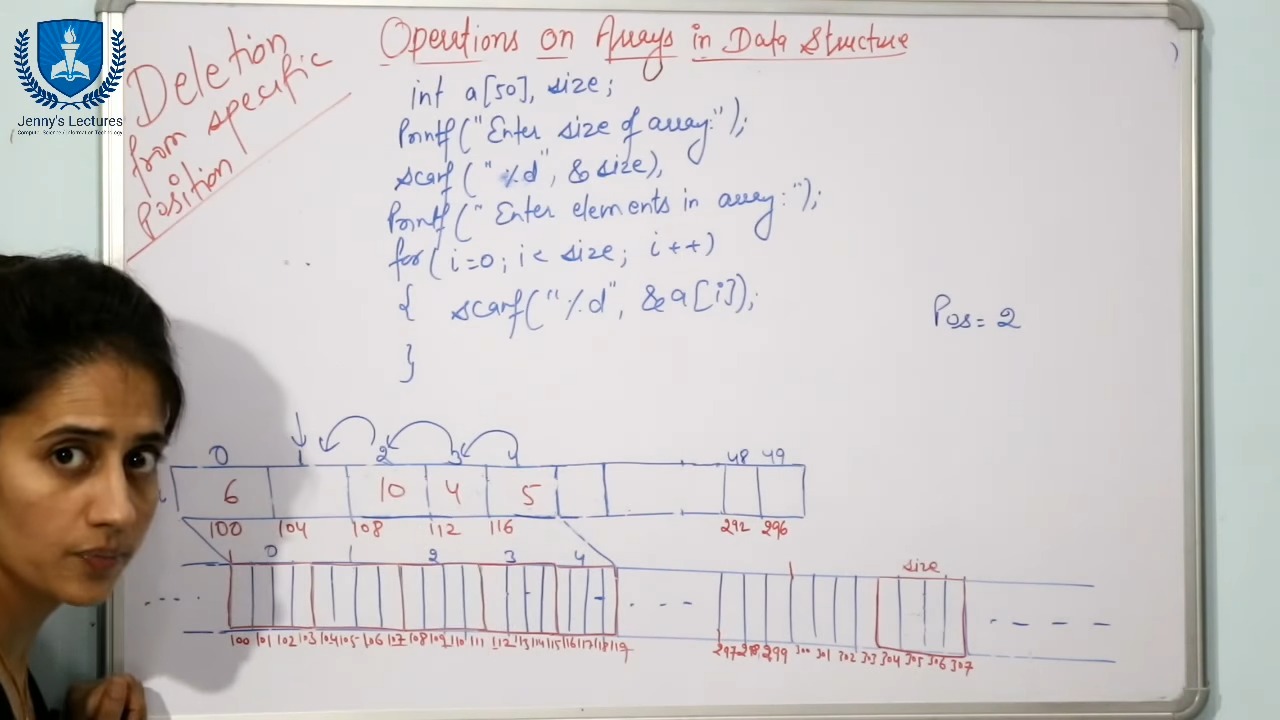 Jenny's Lectures
Computer Science/Information Technology
Deletion
from specific
position
Operations on Arrays in Data Structure
int a[50], size;
Printf("Enter size of array:");
scanf("%d", &size),
Printf("Enter elements in array:");
for(i=0; i< size; i++)
{ scanf("%d", &a[i]);
}
Pos= 2
0 1 2 3 4 48 49
6 10 4 5
100 104 108 112 116 292 296
0 1 2 3 4 size
100 101 102 103 104 105 106 107 108 109 110 111 112 113 114 115 116 117 118 119 297 298 299 300 301 302 303 304 305 306 307